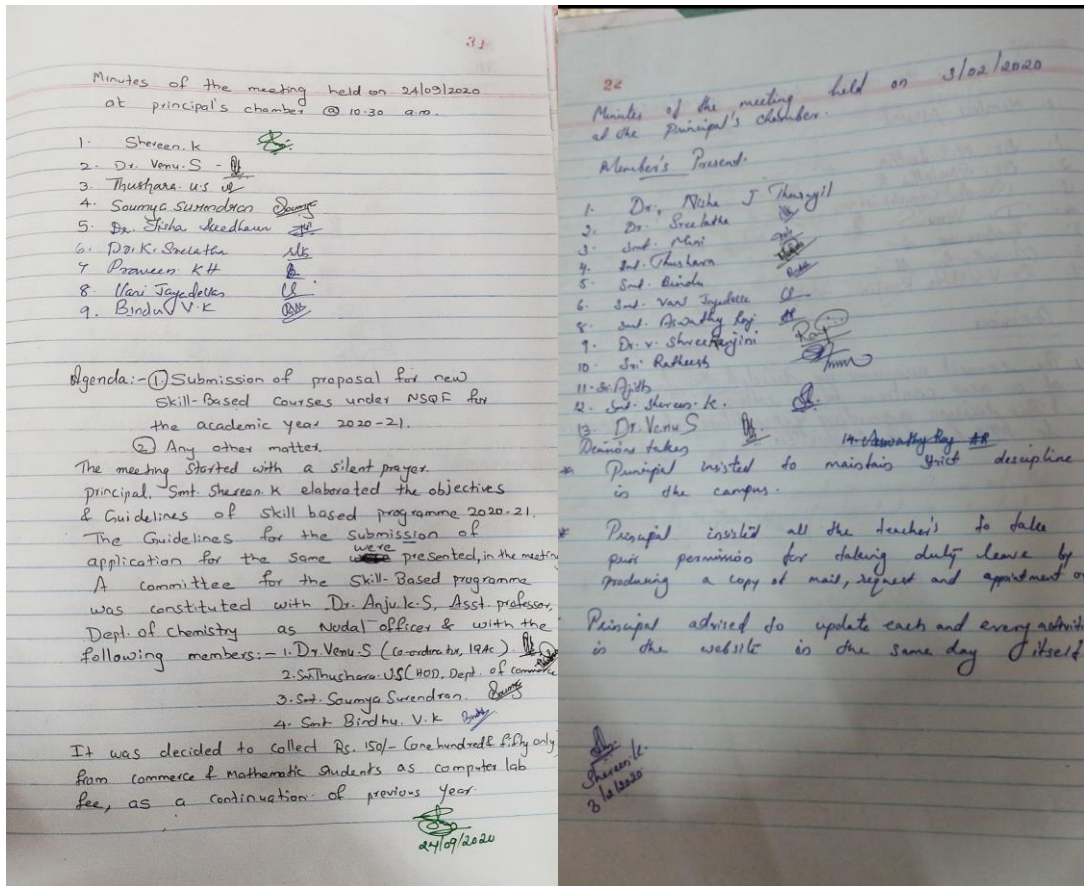 31
Minutes of the meeting held on 24/09/2020
at principal's chamber @ 10.30 a.m.
1. Shereen.k
2. Dr. Venu.S -
3. Thushara. U.S
4. Soumya Surendran
5. Dr. Jisha
6. Dr. K. Sreelatha
7 Praveen KH
8. Vani Jayadevan
9. Bindu V.K
Agenda:- ① Submission of proposal for new
Skill-Based courses under NSQF for
the academic year 2020-21.
② Any other matter.
The meeting started with a silent prayer.
principal, Smt. Shereen.K elaborated the objectives
& Guidelines of skill based programme 2020-21.
The Guidelines for the submission of
application for the same were presented, in the meeting
A committee for the Skill-Based programme
was constituted with Dr. Anju.K.S, Asst. professor,
Dept. of Chemistry as Nodal officer & with the
following members:- 1. Dr. Venu.S (Co-ordinator, IQAC)
2. Smt Thushara. U.S (HOD, Dept. of commerce
3. Smt. Soumya Surendran
4. Smt Bindhu. V.K
It was decided to collect Rs. 150/- (one hundred & fifty only
from commerce & Mathematic Students as computer lab
fee, as a continuation of previous year.
24/09/2020
22
Minutes of the meeting held on 3/02/2020
at the Principal's chamber.
Member's Present.
1. Dr. Nisha J Tharayil
2. Dr. Sreelatha
3. Smt. Mini
4. Smt. Thushara
5. Smt. Bindu
6. Smt. Vani Jayadevan
8. Smt. Aswathy Raj
9. Dr. V. Shreeranjini
10. Sri Ratheesh
11. Sri. Ajith
12. Smt. Shereen. K.
13. Dr. Venu S
14. Aswathy Raj
Decisions taken
* Principal insisted to maintain strict descipline
in the campus.
* Principal insisted all the teacher's to take
prior permission for taking duty leave by
producing a copy of mail, request and appointment
Principal advised to update each and every
in the website in the same day itself
Shereen. K.
3/2/2020